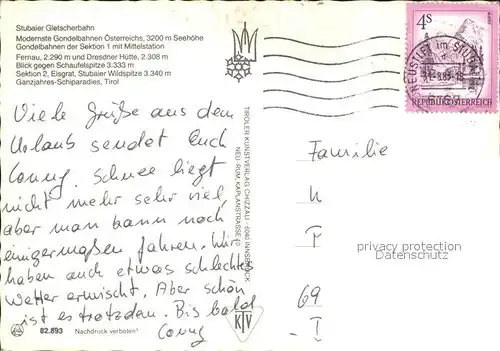 Stubaier Gletscherbahn
Modernste Gondelbahnen Österreichs, 3200 m Seehöhe
Gondelbahnen der Sektion 1 mit Mittelstation
Fernau, 2.290 m und Dresdner Hütte, 2.308 m
Blick gegen Schaufelspitze 3.333 m
Sektion 2, Eisgrat, Stubaier Wildspitze 3.340 m
Ganzjahres-Schiparadies, Tirol
4S
REPUBLIK ÖSTERREICH
NEUSTIFT im STUBAI
Viele Grüße aus dem
Urlaub sendet Euch
Conny. Schnee liegt
nicht mehr sehr viel,
aber man kann noch
einigermaßen fahren. Wir
haben auch etwas schlechtes
Wetter erwischt. Aber schön
ist es trotzdem. Bis bald
Conny
82.893
Nachdruck verboten!
TIROLER KUNSTVERLAG CHIZZALI · 6040 INNSBRUCK
NEU-RUM, KAPLANSTRASSE 10
KTV
Familie
privacy protection
Datenschutz
69